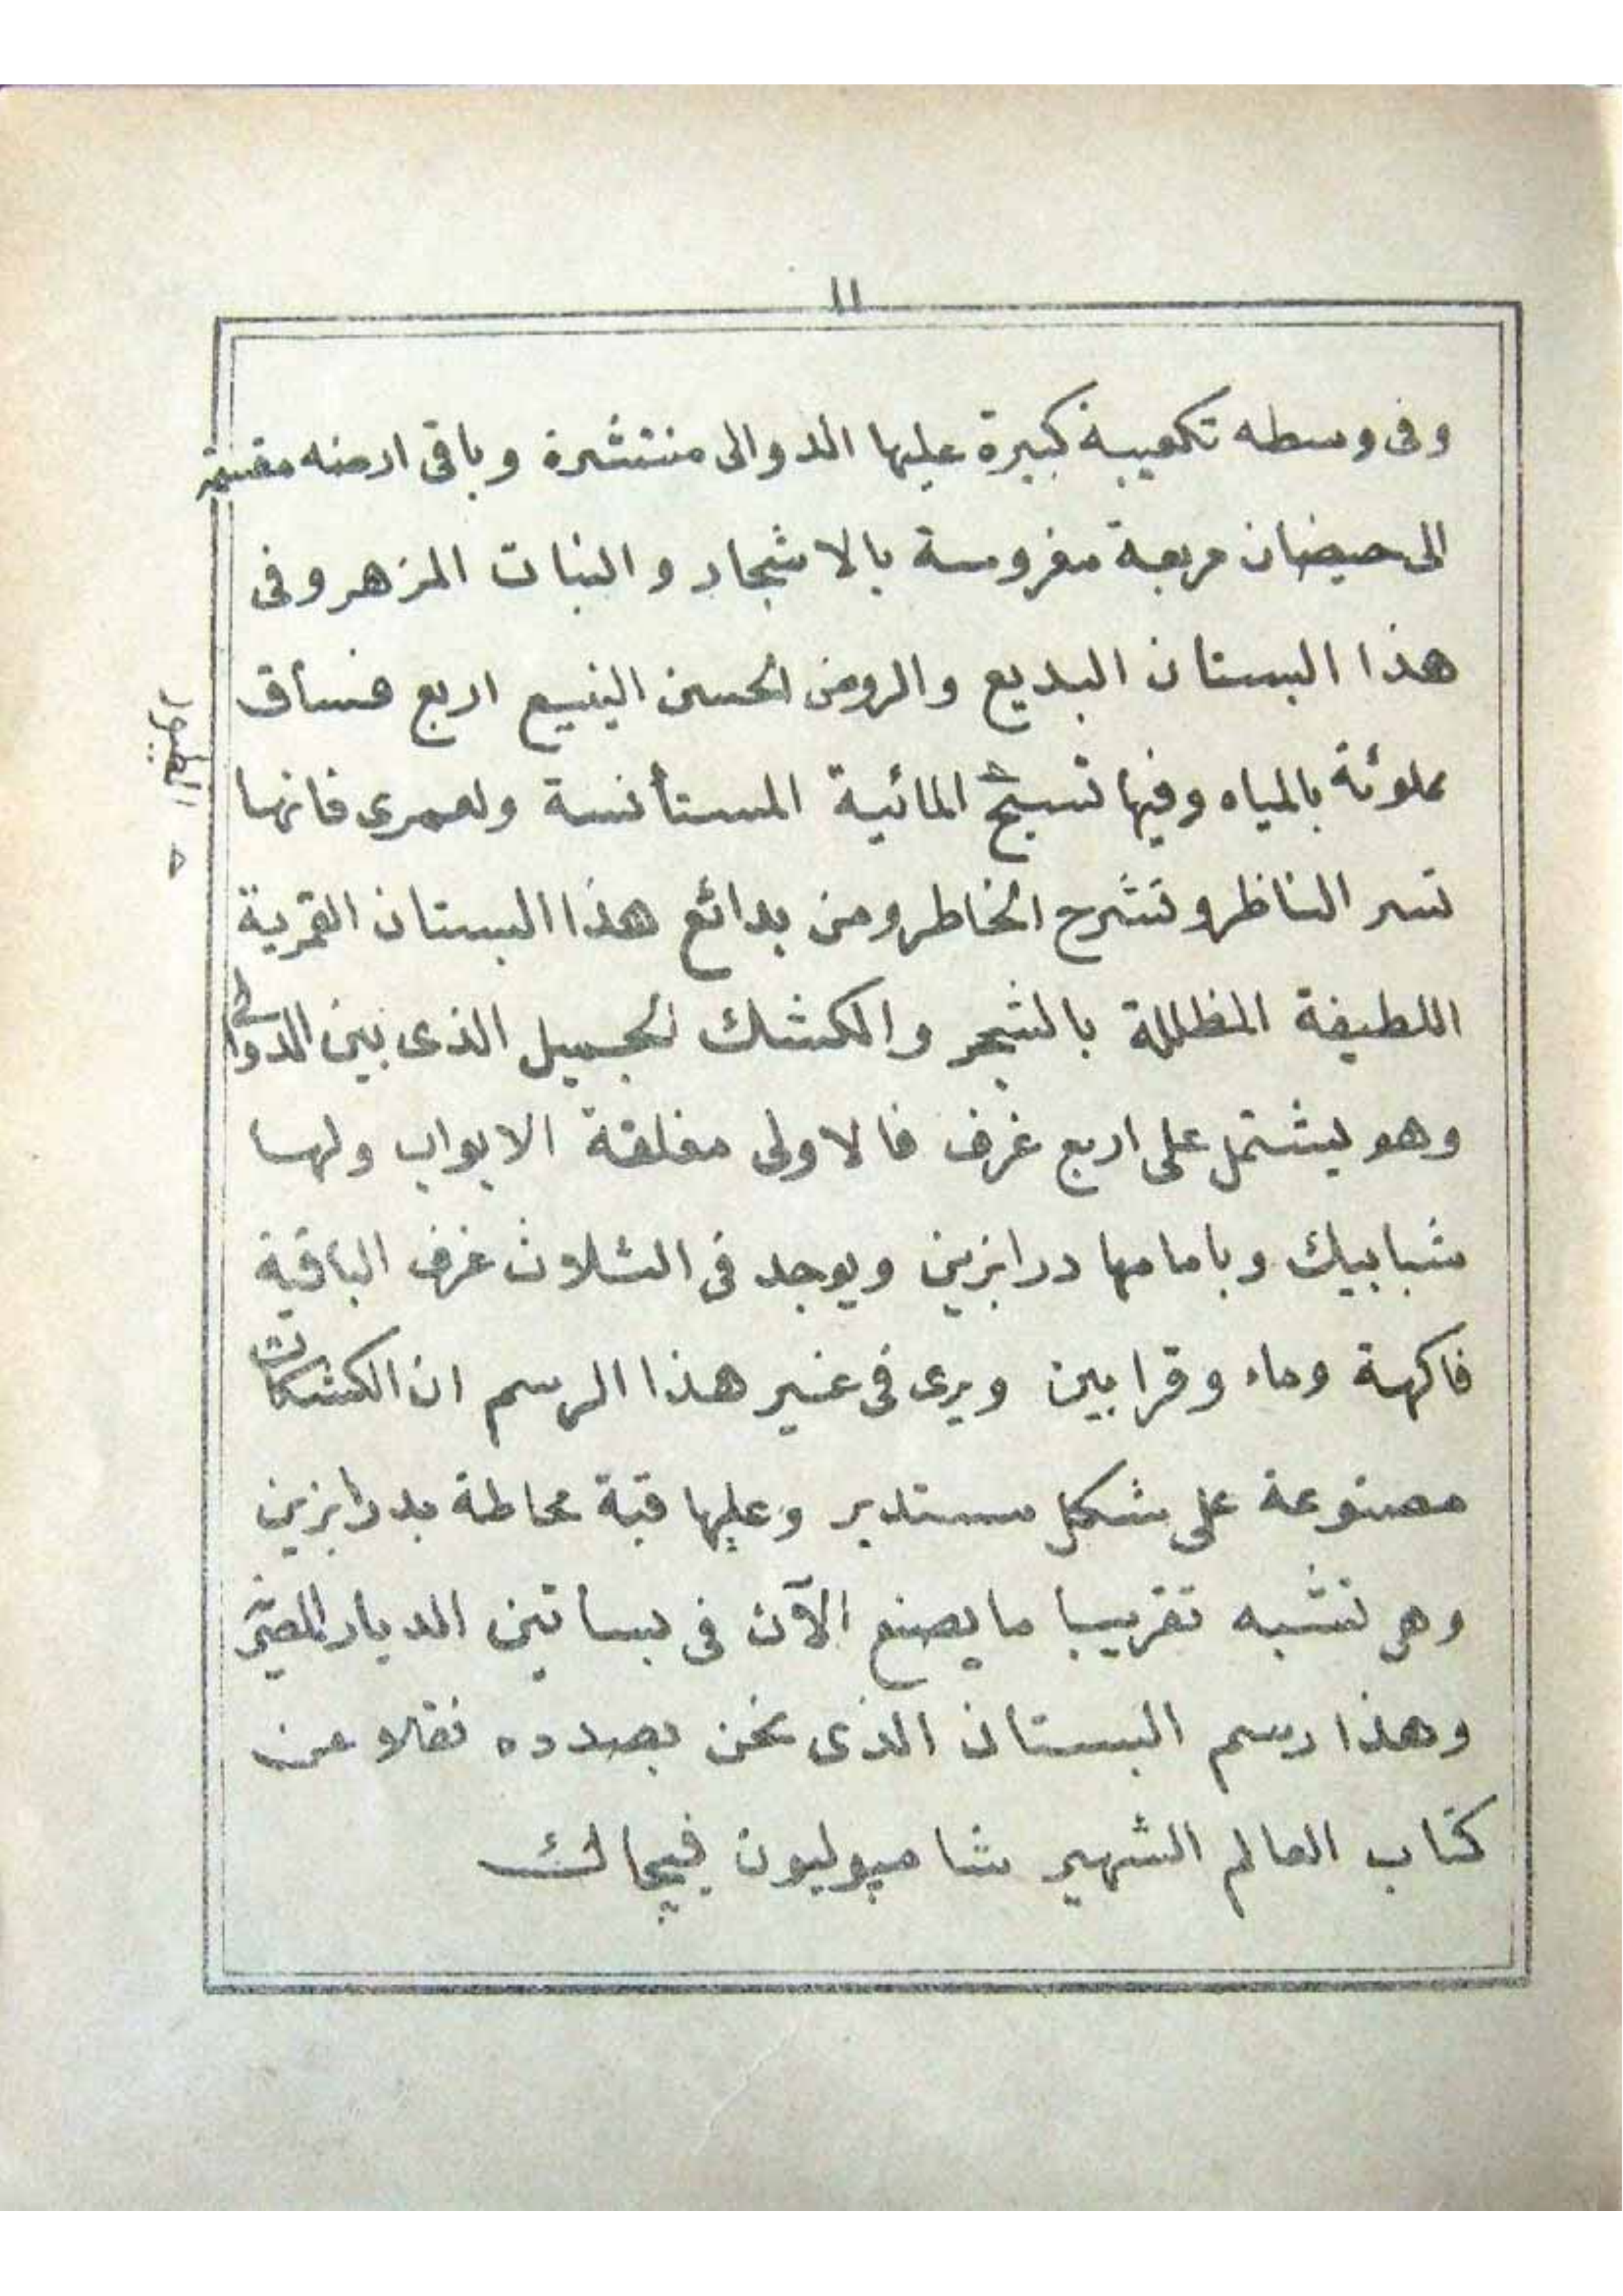 ١١
وفى وسطه تكعيبة كبيرة عليها الدوالى منتشرة وباقى ارضه مقسمة
الى حيضان مربعة مغروسة بالاشجار والنبات المزهر وفى
هذا البستان البديع والروض الحسن الينيع اربع فساق
مملوئة بالمياه وفيها تسبح المائية المستأنسة ولعمرى فانها
الطيور
تسر الناظر وتشرح الخاطر ومن بدائع هذا البستان القمرية
اللطيفة المظللة بالشجر والكشك الجميل الذى بين الدوالى
وهو يشتمل على اربع غرف فالاولى مغلقة الابواب ولها
شبابيك وبامامها درابزين ويوجد فى الثلاث غرف الباقية
فاكهة وماء وقرابين ويرى فى غير هذا الرسم ان الكشكات
مصنوعة على شكل مستدير وعليها قبة محاطة بدرابزين
وهى تشبه تقريبا ما يصنع الآن فى بساتين الديار المصرية
وهذا رسم البستان الذى نحن بصدده نقلا عن
كتاب العالم الشهير شامپوليون فيچاك